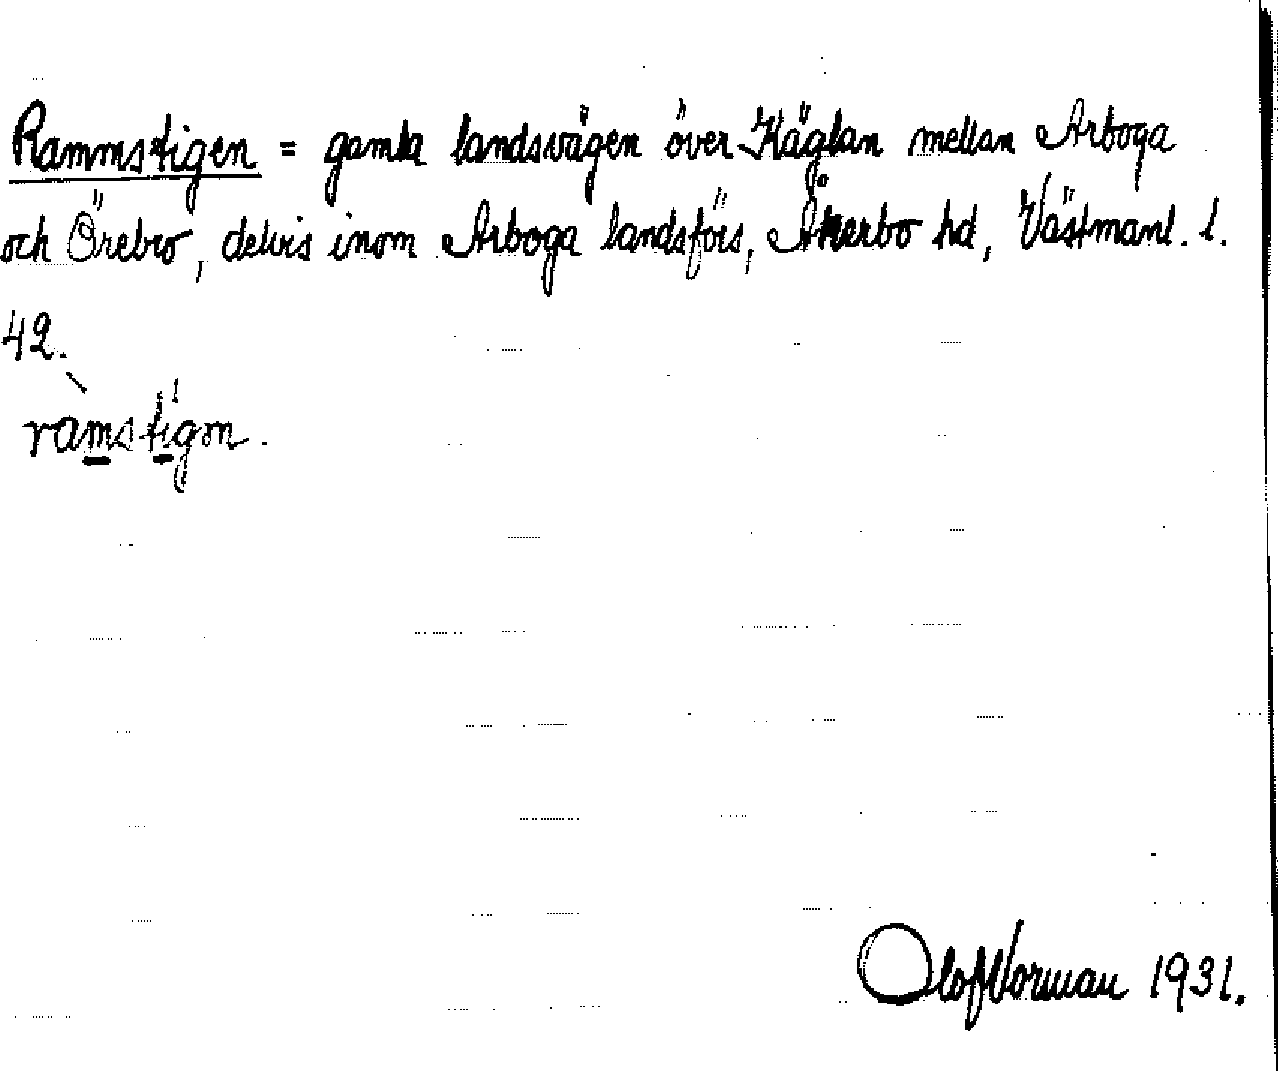 Rammstigen = gamla landsvägen över Käglan mellan Arboga
och Örebro, delvis inom Arboga landsförs, Åkerbo hd, Västmanl. l.
42.
ràmstígon.
Olof Norman 1931.